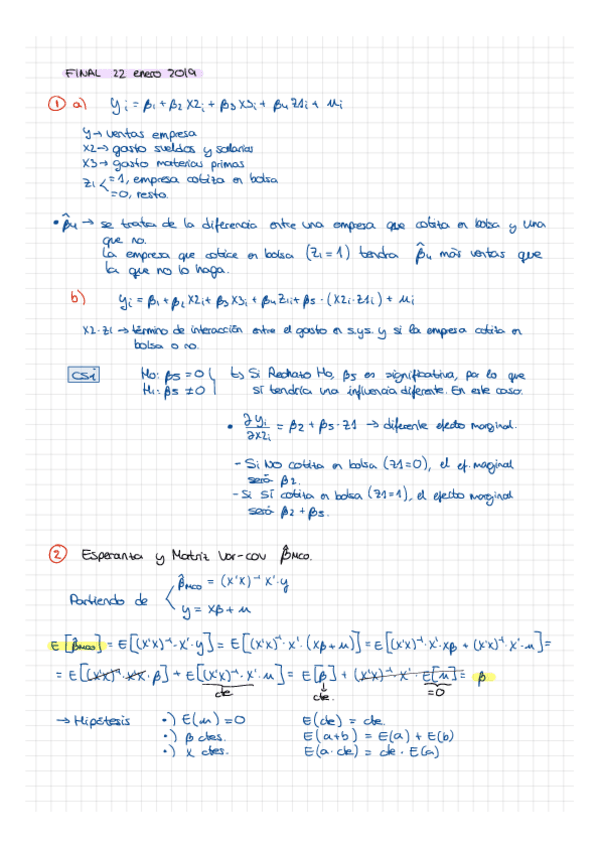 FINAL 22 enero 2019
① a) yi = β1 + β2 X2i + β3 X3i + β4 Z1i + ui
y → ventas empresa
X2 → gasto sueldos y salarios
X3 → gasto materias primas
Z1 < =1, empresa cotiza en bolsa
=0, resto.
• β̂4 → se trata de la diferencia entre una empresa que cotiza en bolsa y una
que no.
La empresa que cotice en bolsa (Z1=1) tendrá β̂4 más ventas que
la que no lo haga.
b) yi = β1 + β2 X2i + β3 X3i + β4 Z1i + β5 · (X2i·Z1i) + ui
X2·Z1 → término de interacción entre el gasto en s.ys. y si la empresa cotiza en
bolsa o no.
CSI H0: β5 = 0 ↳ Si Rechazo H0, β5 es significativa, por lo que
H1: β5 ≠ 0 sí tendría una influencia diferente. En este caso:
• ∂yi/∂X2i = β2 + β5 · Z1 → diferente efecto marginal.
- Si NO cotiza en bolsa (Z1=0), el ef. marginal
será β2.
- Si SÍ cotiza en bolsa (Z1=1), el efecto marginal
será β2 + β5.
② Esperanza y Matriz Var-cov β̂MCO.
Partiendo de < β̂MCO = (X'X)⁻¹ X'·y
y = Xβ + u
E[β̂MCO] = E[(X'X)⁻¹·X'·y] = E[(X'X)⁻¹·X'·(Xβ+u)] = E[(X'X)⁻¹·X'·Xβ + (X'X)⁻¹·X'·u] =
= E[(X'X)⁻¹·X'X·β] + E[(X'X)⁻¹·X'·u] = E[β] + (X'X)⁻¹·X'·E[u] = β
cte cte. =0
→ Hipótesis •) E(u) = 0 E(cte) = cte.
•) β ctes. E(a+b) = E(a) + E(b)
•) X ctes. E(a·cte) = cte · E(a)